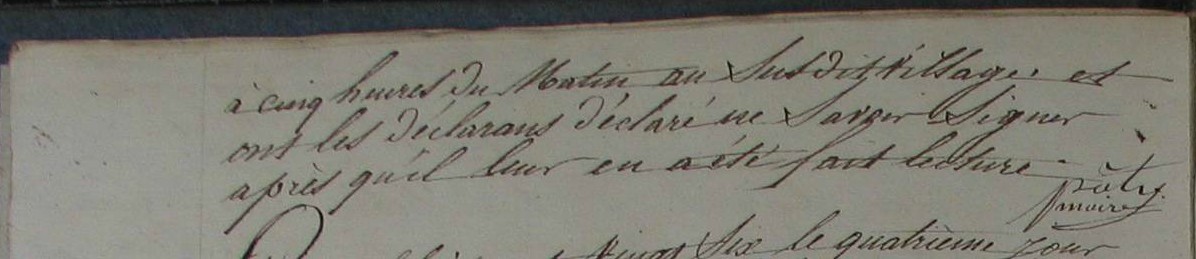 à cinq heures du Matin au Susdit Village. et
ont les déclarans déclaré ne Savoir Signer
après qu'il leur en a été fait lecture
maire
vingt Six le quatrième jour